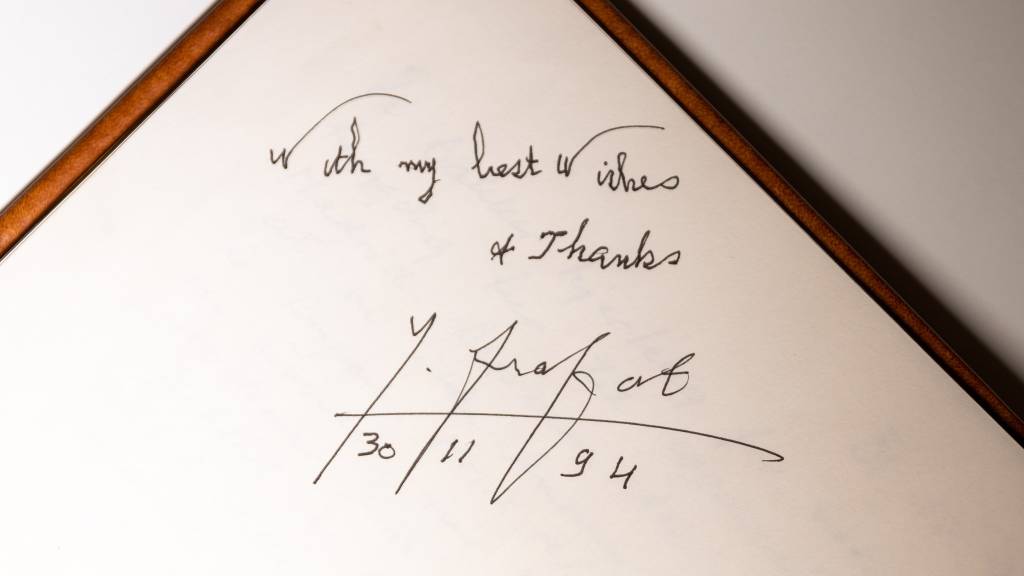 With my best Wishes
& Thanks
Y. Arafat
30/11/94